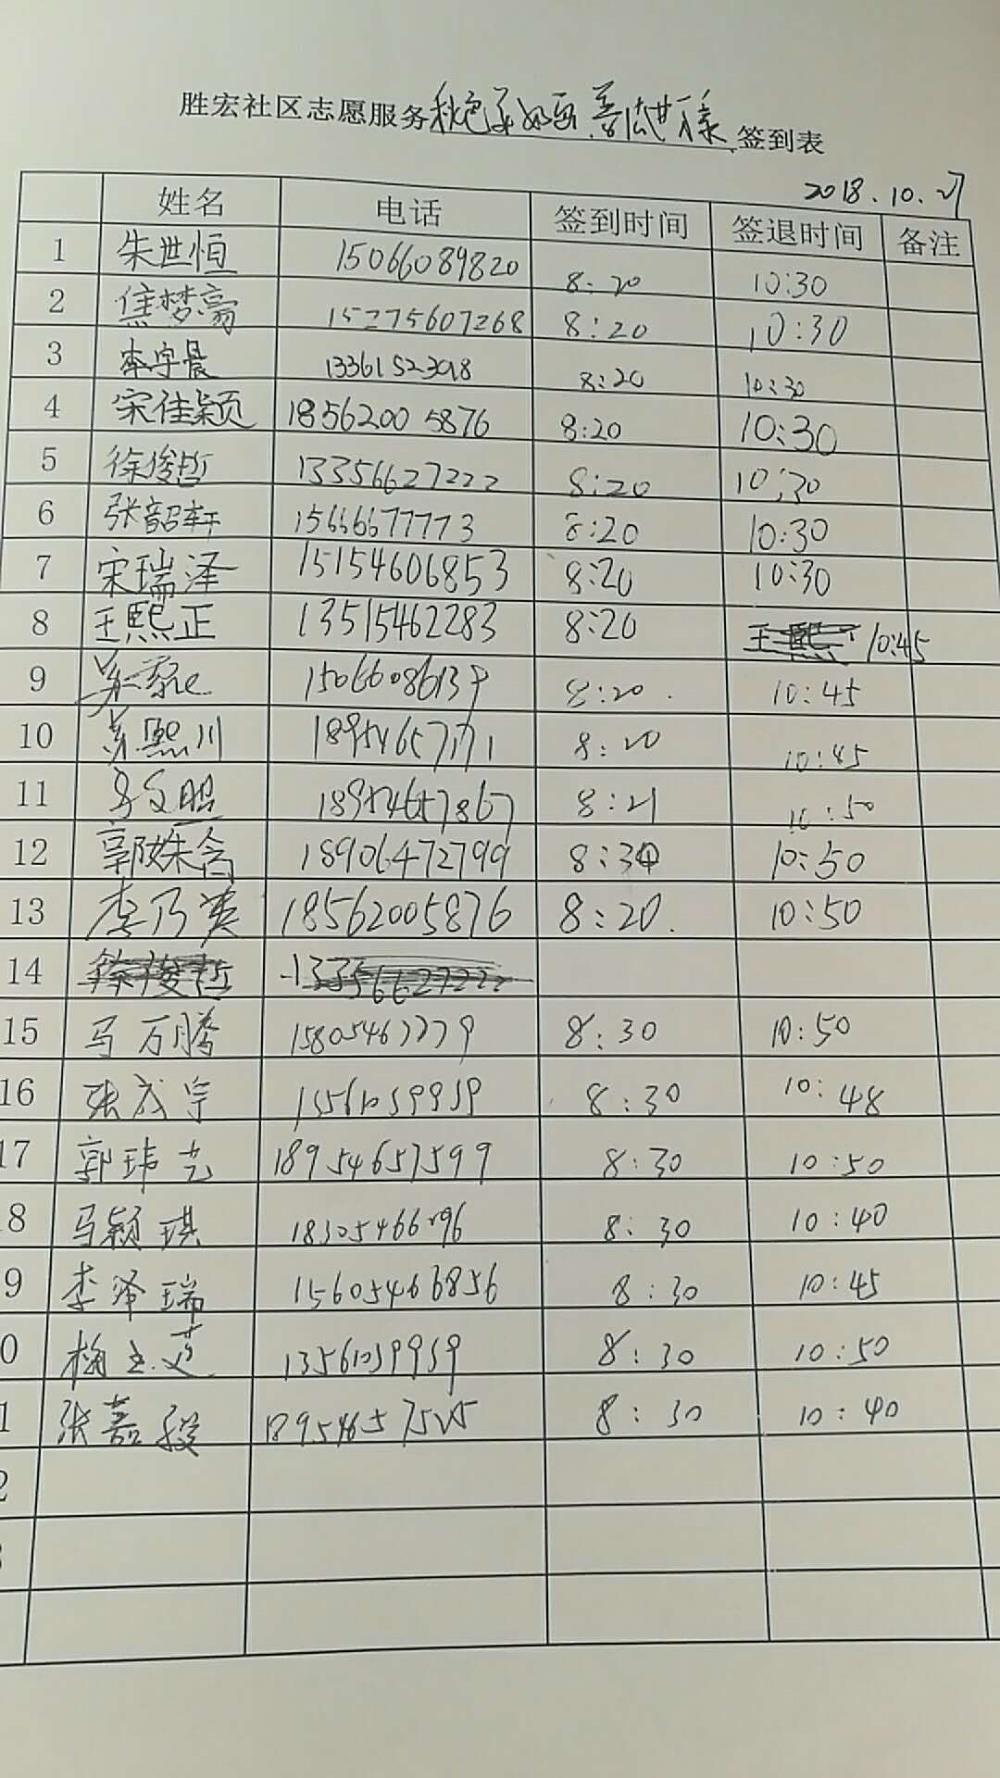 胜宏社区志愿服务秋色 如画 签到表
2018.10.27
姓名 电话 签到时间 签退时间 备注
1 朱世恒 15066089820 8:20 10:30
2 焦梦 15275607268 8:20 10:30
3 李宇晨 8:20 10:30
4 宋佳颖 18562005876 8:20 10:30
5 徐俊哲 13356627222 8:20 10:30
6 张韶轩 15666677773 8:20 10:30
7 宋瑞泽 15154606853 8:20 10:30
8 王熙正 13515462283 8:20 王熙 10:45
9 8:20 10:45
10 熙川 8:20 10:45
11 18954657867 8:21 10:50
12 郭姝含 18906472799 8:30 10:50
13 李乃英 18562005876 8:20 10:50
14 徐俊哲 13356627222
15 马万腾 8:30 10:50
16 张成宇 8:30 10:48
17 郭玮艺 18954657599 8:30 10:50
8 马颖琪 8:30 10:40
9 李泽瑞 15605466856 8:30 10:45
0 13561059959 8:30 10:50
1 张嘉骏 8:30 10:40
2